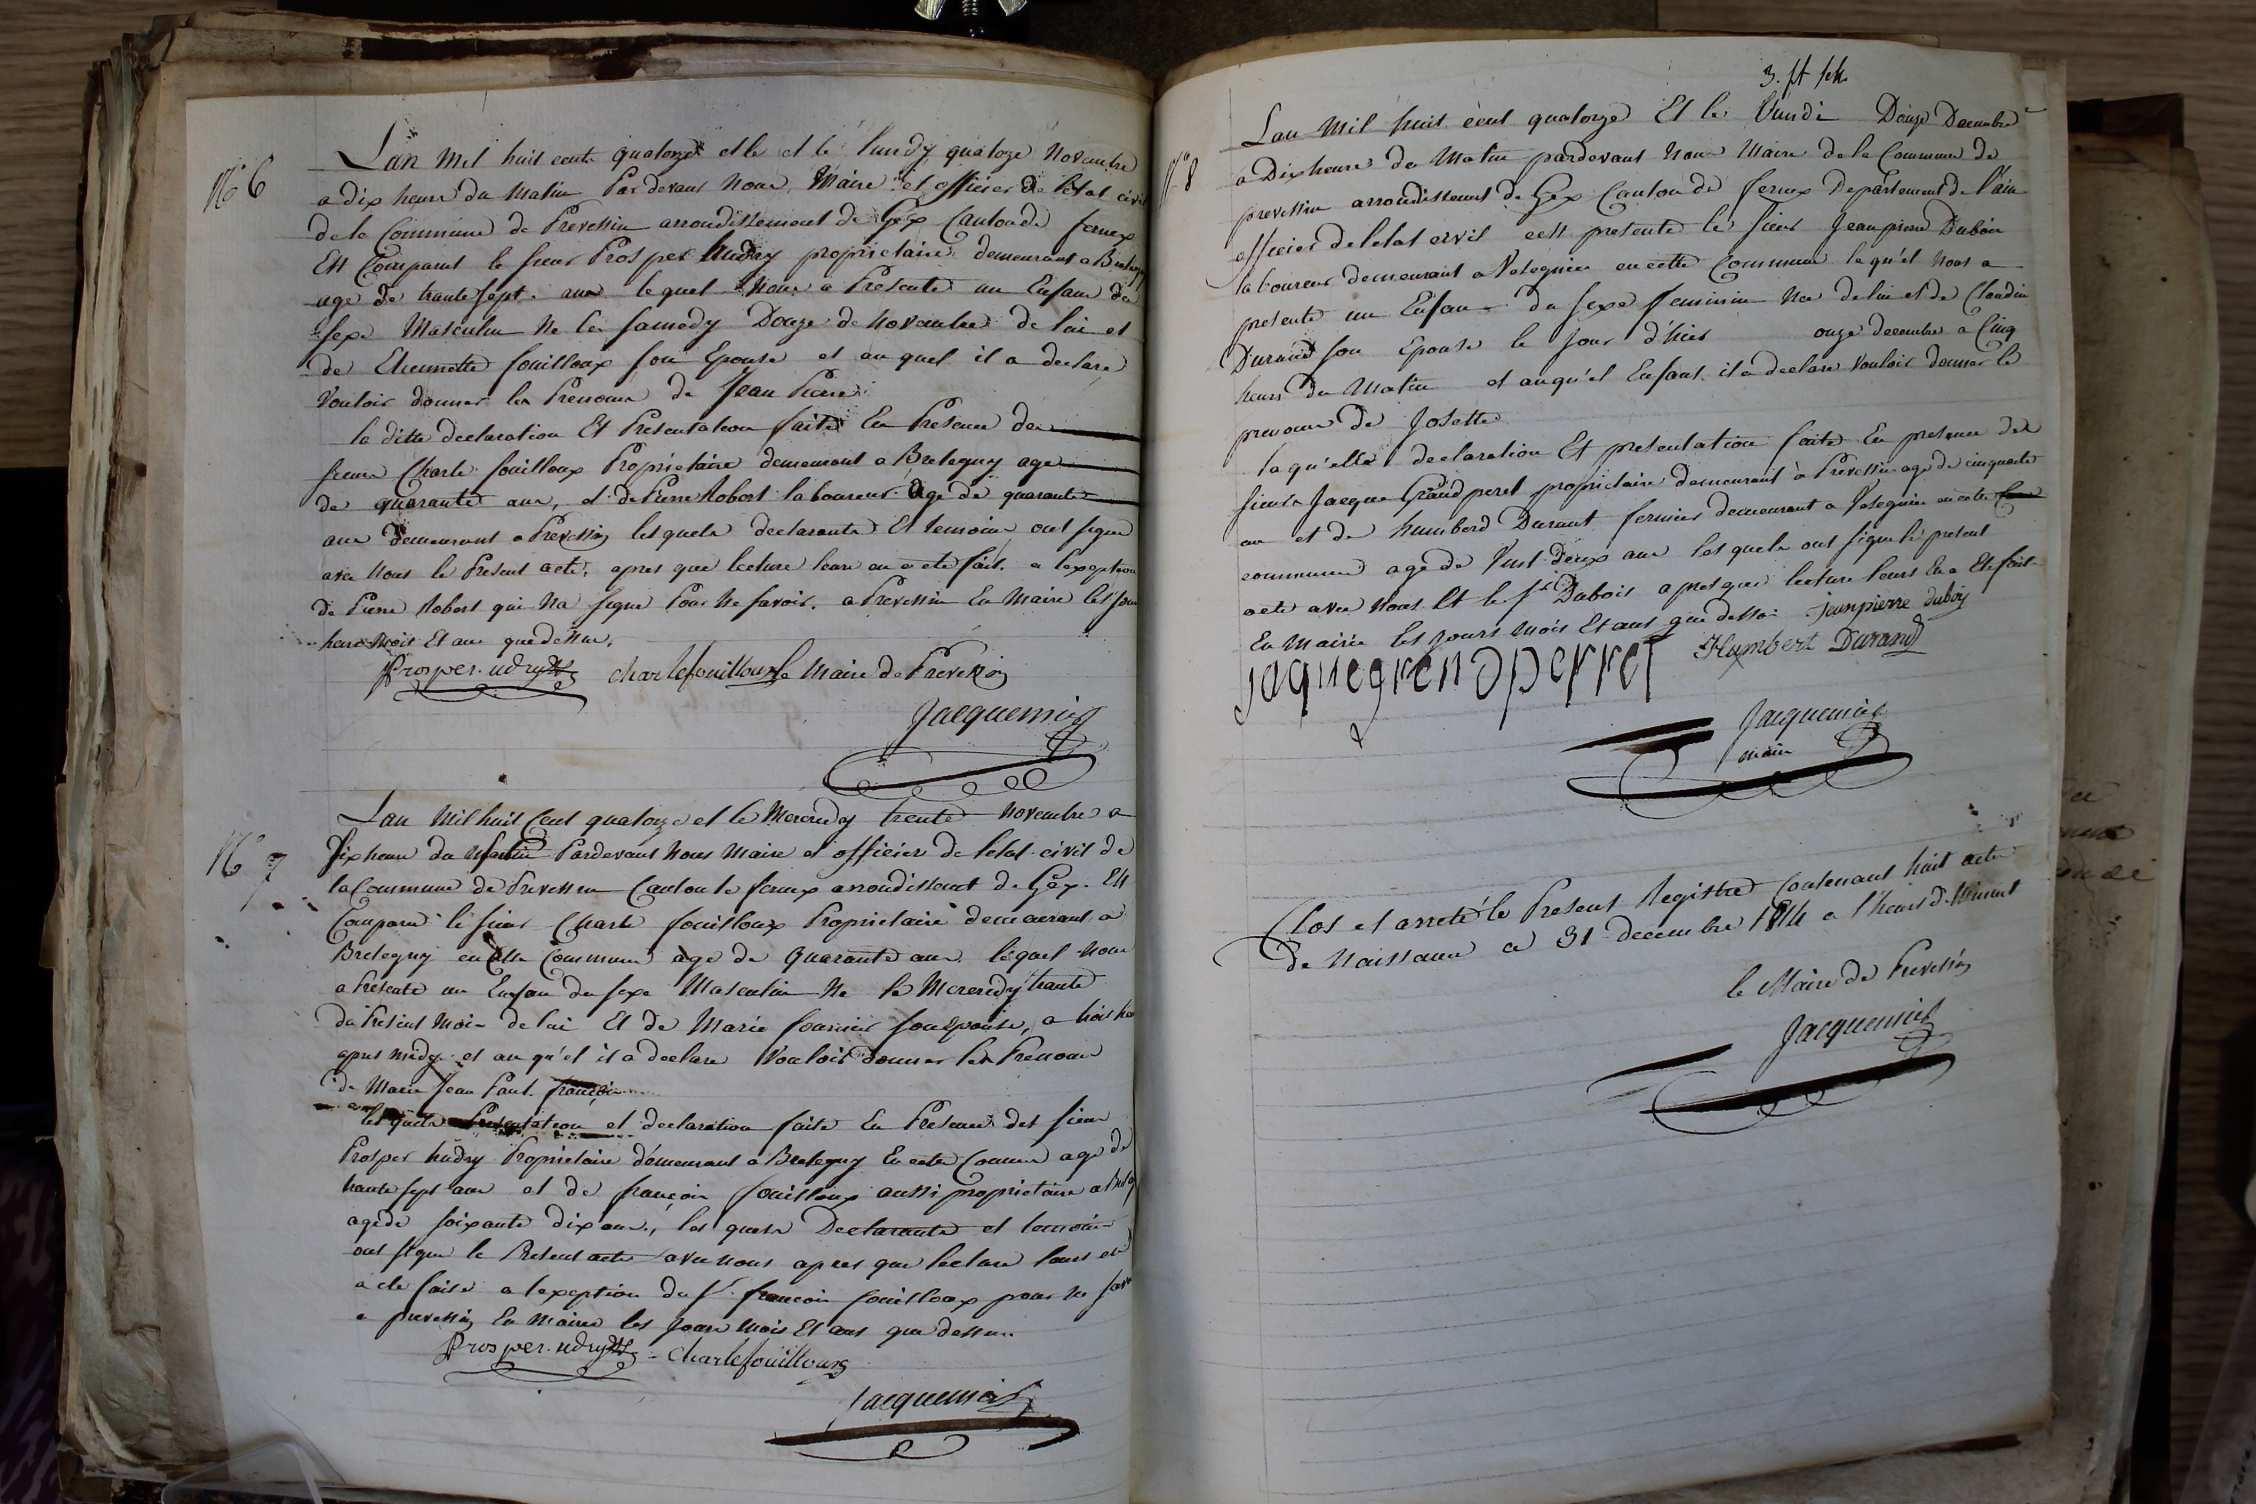 N° 6
Lan mil huit cents quatorze et le et le lundy quatoze Novembre
a dix heure du Matin Pardevant Nous Maire et officier de l'Etat civil
de la Commune de Prevessin arrondissement de Gex Canton de fernex
Est Comparut le sieur Prosper hudry proprietaire demeurant a
age de trante sept ans lequel Nous a Presenté un Enfant du
sexe Masculin Ne le samedy Douze de Novembre de lui et
de Etiennette fouilloux son Epouse et au quel il a declaré
Vouloir donner les Prenoms de Jean Pierre
la ditte declaration Et Presentation faite En Presence des
sieurs Charle fouilloux Proprietaire demeurant a Bretegny age
de quarante ans, et de Pierre Robert laboureur age de quarante
ans demeurant a Prevessin les quels declarants Et temoins ont signe
avec Nous le Present acte, apres que lecture leurs en a ete fait, a lexeption
de Pierre Robert qui Na signe Pour Ne savoir. a Prevessin En Mairie les jour
heure Mois Et an que dessus.
Prosper udry charle fouilloux le Maire de Prevessin
Jacquemier
N° 7
Lan Mil huit Cent quatorze et le Mercredy trente Novembre a
six heure du Matin Pardevant Nous Maire et officier de letat civil de
la Commune de Prevessin Canton de fernex arrondissement de Gex. Est
Comparu le sieur Charle fouilloux Proprietaire demeurant a
Bretegny en Cette Commune age de quarante ans lequel nous
a Presente un Enfan du sexe Masculin Ne le Mercredy trante
du Present Mois de lui Et de Marie fournier son Epouse, a trois
apres midy et au qu'el il a declare Vouloir donner les Prenoms
de Marie Jean Paul françois
les quels Presentation et declaration faite En Presence des sieurs
Prosper hudry Proprietaire démeurant a Bretegny En cette Commune age de
trante sept ans et de françois fouilloux aussi proprietaire a
agé de soixante dix ans, les quels Declarants et temoins
ont signe le Present acte avec nous apres que lecture leurs en
a ete faite a lexeption du Sr. françois fouilloux pour ne
a prevessin En Mairie les jours mois Et ans que dessus
Prosper udry charle fouilloux
Jacquemier
N° 8
Lan Mil huit cent quatorze Et le lundi Douze Decembre
a Dix heure du Matin pardevant Nous Maire de la Commune de
prevessin arrondissement de Gex Canton de fernex Departement de l'ain
officier de letat civil cest presenté le sieur Jean pierre Dubois
laboureur demeurant a Vesegnin en cette Commune lequ'el nous a
presenté un Enfan du sexe feminin Nee de lui et de Claudine
Durand son Epouse le jour d'hier onze decembre a Cinq
heurs du Matin et auqu'el Enfant il a declare Vouloir donner le
prenom de Josette
laqu'elle declaration Et presentation faite En presence des
sieurs Jacque Grandperet proprietaire demeurant à Prevessin agé de cinquante
an et de humberd Durant fermier demeurant a Vesegnin en cette
commune agé de Vint deux ans les quels ont signe le present
acte avec Nous Et le Sr Dubois apres que lecture leurs En a Ete fait
En Mairie les jours mois Et ans que dessus jeanpierre duboi
jaque grendperret Humbert Durand
Jacquemier
maire
Clos et arreté le Present Registre Contenant huit actes
de Naissance ce 31 decembre 1814 a l'heure de Minuit
le Maire de Prevessin
Jacquemier